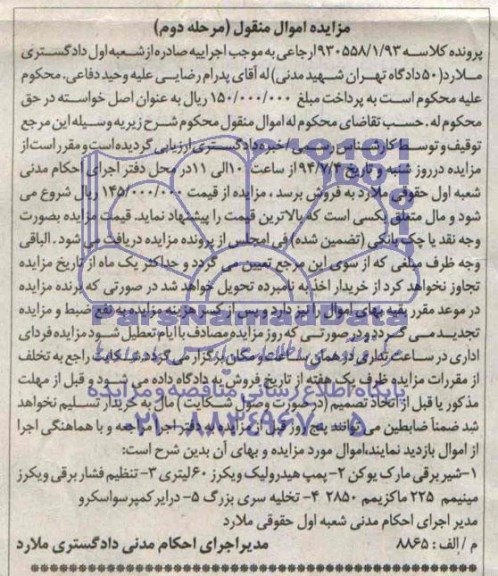 مزایده اموال منقول (مرحله دوم)
پرونده کلاسه ۹۳۰۵۵۸/۱/۹۳ ارجاعی به موجب اجراییه صادره از شعبه اول دادگستری
ملارد (۵۰ دادگاه تهران شهید مدنی) له آقای پدرام رضایی علیه وحید دفاعی. محکوم
علیه محکوم است به پرداخت مبلغ ۱۵۰/۰۰۰/۰۰۰ ریال به عنوان اصل خواسته در حق
محکوم له. حسب تقاضای محکوم له اموال منقول محکوم شرح زیر به وسیله این مرجع
توقیف و توسط کارشناس رسمی / خبره دادگستری ارزیابی گردیده است و مقرر است از
مزایده در روز شنبه و تاریخ ۹۴/۷/۴ از ساعت ۱۰ الی ۱۱ در محل دفتر اجرای احکام مدنی
شعبه اول حقوقی ملارد به فروش برسد، مزایده از قیمت ۱۴۵/۰۰۰/۰۰۰ ریال شروع می
شود و مال متعلق بکسی است که بالاترین قیمت را پیشنهاد نماید. قیمت مزایده بصورت
وجه نقد یا چک بانکی (تضمین شده) فی المجلس از برنده مزایده دریافت می شود. الباقی
وجه ظرف مبلغی که از سوی این مرجع تعیین می گردد و حداکثر یک ماه از تاریخ مزایده
تجاوز نخواهد کرد از خریدار اخذ به نامبرده تحویل خواهد شد در صورتی که برنده مزایده
در موعد مقرر بقیه بهای اموال را نپردازد و پس از کسر هزینه مزایده به نفع ضبط و مزایده
تجدید می گردد و در صورتی که روز مزایده مصادف با ایام تعطیل شود مزایده فردای
اداری در ساعت اداری در همان ساعت و مکان برگزار می گردد. شکایت راجع به تخلف
از مقررات مزایده ظرف یک هفته از تاریخ فروش به دادگاه داده می شود و قبل از مهلت
مذکور یا قبل از اتخاذ تصمیم (در صورت وصول شکایت) مال به خریدار تسلیم نخواهد
شد ضمنا ضابطین می توانند پنج روز قبل از مزایده به دفتر اجرا مراجعه و با هماهنگی اجرا
از اموال بازدید نمایند. اموال مورد مزایده و بهای آن بدین شرح است:
۱- شیر برقی مارک یوکن ۲- پمپ هیدرولیک ویکرز ۶۰ لیتری ۳- تنظیم فشار برقی ویکرز
مینیمم ۲۲۵ ماکزیمم ۲۸۵۰ ۴- تخلیه سری بزرگ ۵- درایر کمپرسواسکرو
مدیر اجرای احکام مدنی شعبه اول حقوقی ملارد
م / الف : ۸۸۶۵ مدیر اجرای احکام مدنی دادگستری ملارد
ParsNamadData
پایگاه اطلاع رسانی مناقصه و مزایده
۰۲۱-۸۸۳۴۹۶۷۰-۵